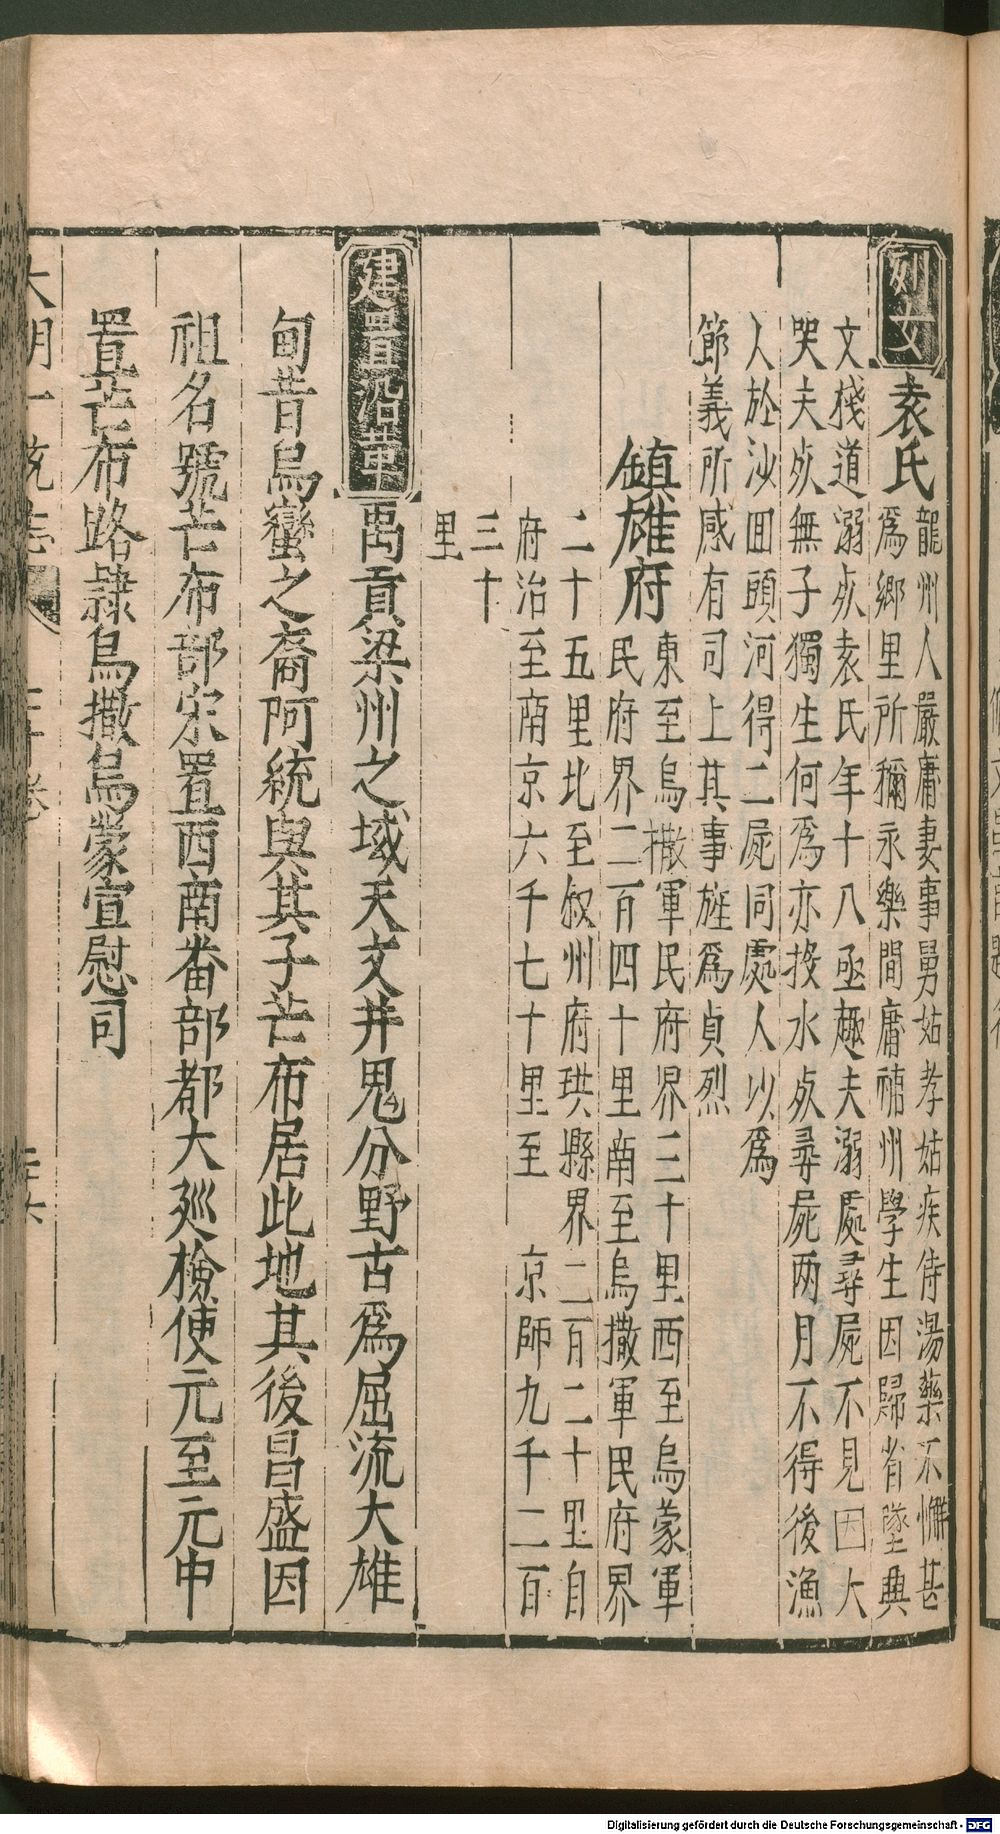 列女
袁氏
龍州人嚴庸妻事舅姑孝姑疾侍湯藥不懈甚
爲鄉里所稱永樂間庸禧州學生因歸省墜典
文棧道溺死袁氏年十八亟趨夫溺處尋屍不見因大
哭夫死無子獨生何爲亦投水死尋屍两月不得後漁
人於沙囬頭河得二屍同處人以爲
節義所感有司上其事旌爲貞烈
鎮雄府
東至烏撒軍民府界三十里西至烏蒙軍
民府界二百四十里南至烏撒軍民府界
二十五里北至叙州府珙縣界二百二十里自
府治至南京六千七十里至 京師九千二百
三十
里
建置沿革
禹貢梁州之域天文井鬼分野古爲屈流大雄
甸昔烏蠻之裔阿統與其子芒布居此地其後昌盛因
祖名號芒布部宋置西南番部都大廵檢使元至元中
置芒布路隷烏撒烏蒙宣慰司
大明一統志
Digitalisierung gefördert durch die Deutsche Forschungsgemeinschaft - DFG